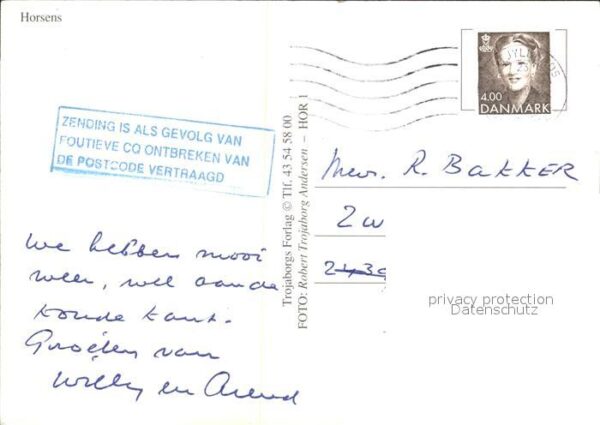 Horsens
JYLLAND
4.00
DANMARK
ZENDING IS ALS GEVOLG VAN
FOUTIEVE CQ ONTBREKEN VAN
DE POSTCODE VERTRAAGD
we hebben mooi
weer, wel aan de
koude kant.
Groeten van
Willy en Arend
Trojaborgs Forlag © Tlf. 43 54 58 00
FOTO: Robert Trojaborg Andersen – HOR 1
Mevr. R. BAKKER
ZW
2430
privacy protection
Datenschutz